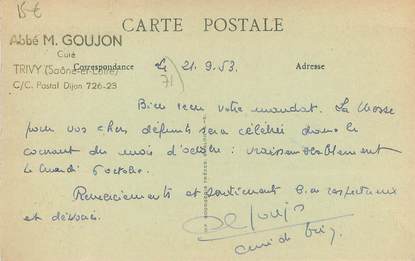 15 €
CARTE POSTALE
Abbé M. GOUJON
Curé
TRIVY (Saône-et-Loire)
C/C. Postal Dijon 726-23
Correspondance
Adresse
(71)
le 21.9.53.
Bien reçu votre mandat. La Messe
pour vos chers défunts sera célébrée dans le
courant du mois d'octobre : vraisemblablement
le lundi 5 octobre.
Remerciements et sentiments bien respectueux
et dévoués.
M Goujon
curé de Trivy.